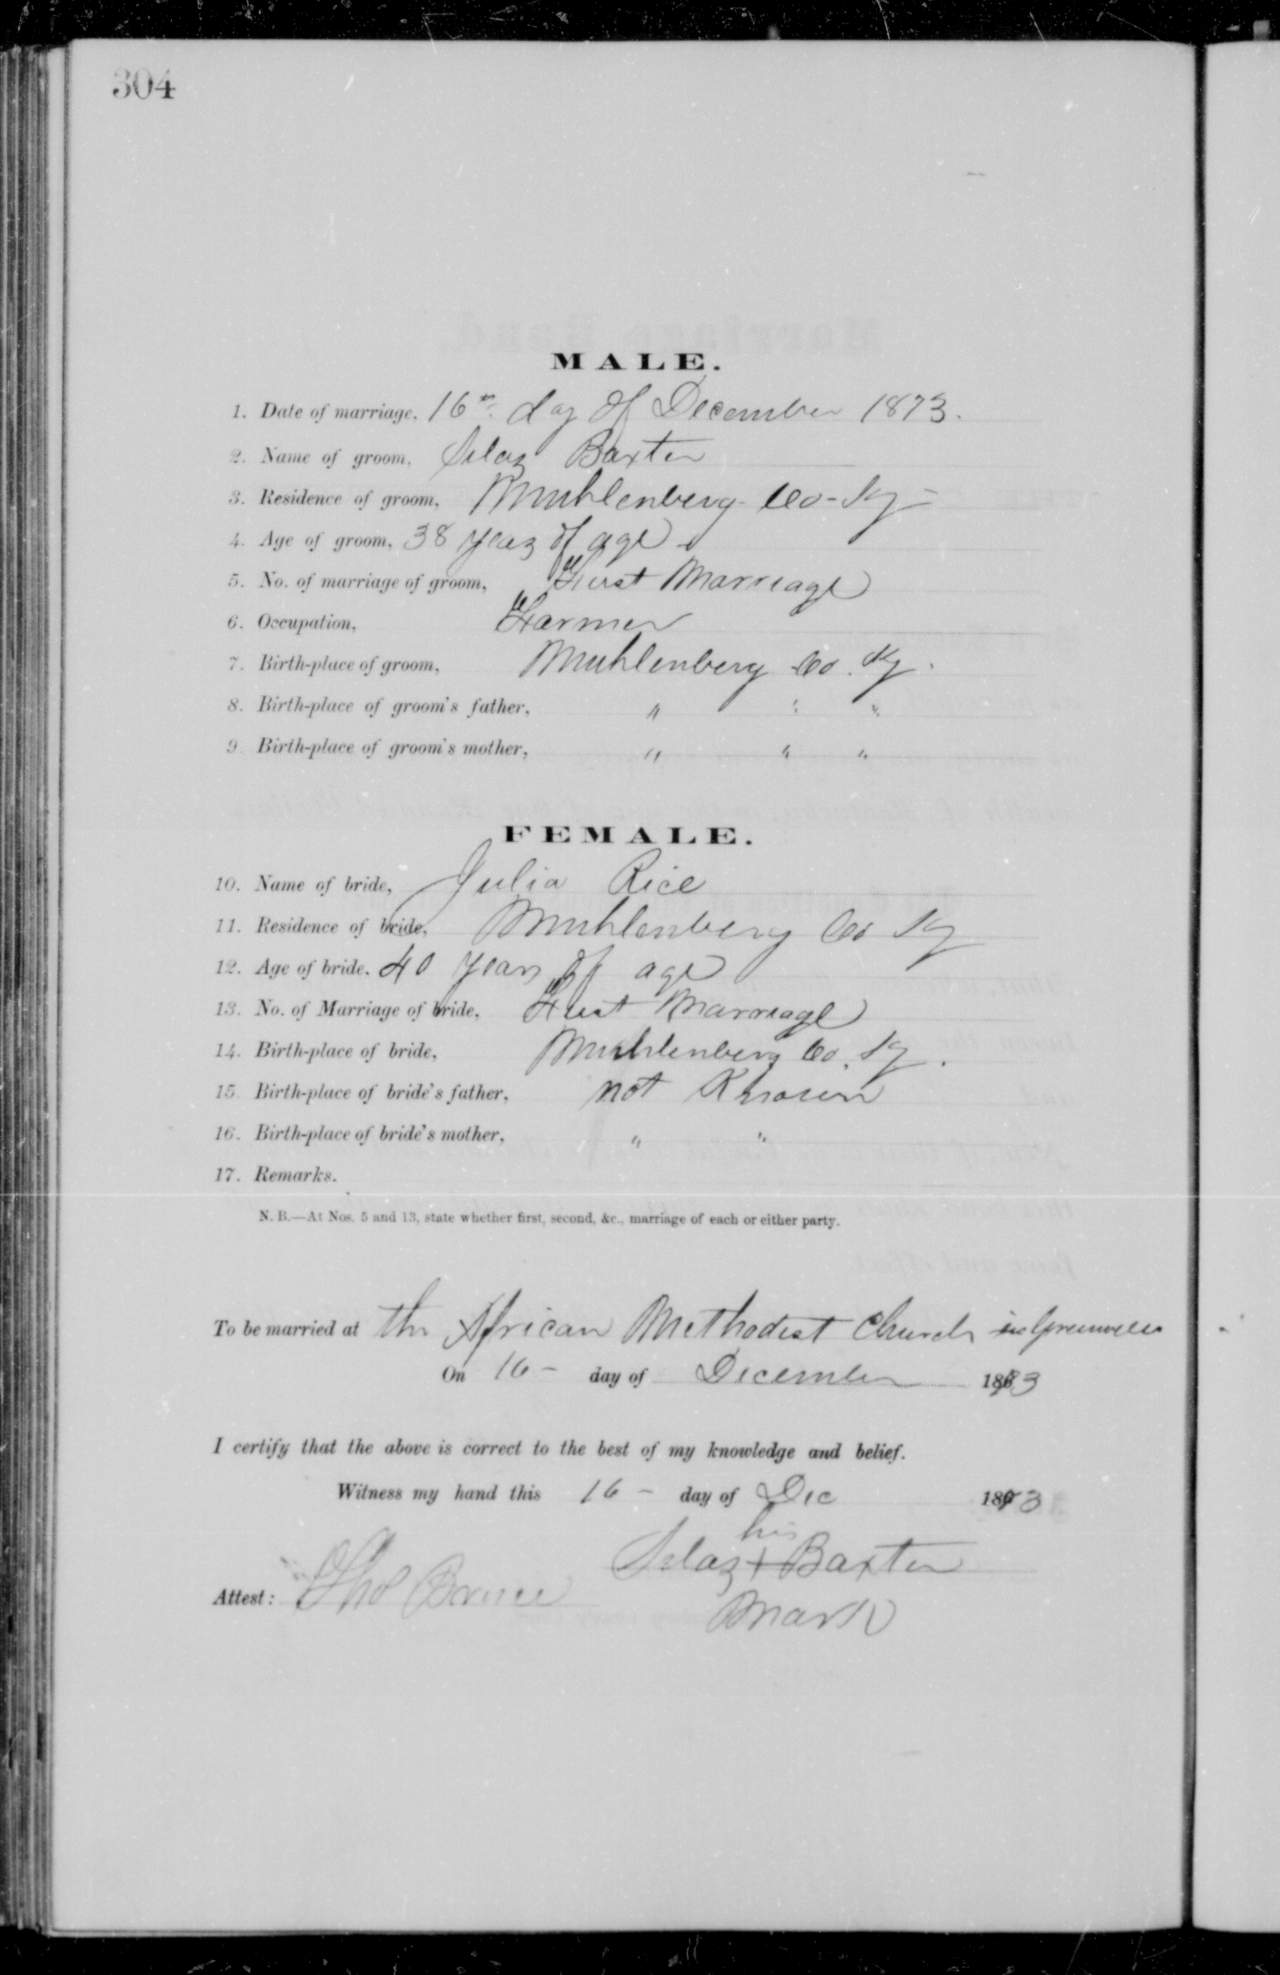 304
MALE.
1. Date of marriage, 16th day of December 1873.
2. Name of groom, Silas Baxter
3. Residence of groom, Muhlenberg Co - Ky -
4. Age of groom, 38 years of age
5. No. of marriage of groom, First Marriage
6. Occupation, Farmer
7. Birth-place of groom, Muhlenberg Co. Ky.
8. Birth-place of groom's father, " " "
9. Birth-place of groom's mother, " " "
FEMALE.
10. Name of bride, Julia Rice
11. Residence of bride, Muhlenberg Co Ky
12. Age of bride, 40 years of age
13. No. of Marriage of bride, First Marriage
14. Birth-place of bride, Muhlenberg Co. Ky.
15. Birth-place of bride's father, not Known
16. Birth-place of bride's mother, " "
17. Remarks.
N. B.—At Nos. 5 and 13, state whether first, second, &c., marriage of each or either party.
To be married at the African Methodist Church in Greenville
On 16 - day of December 1873
I certify that the above is correct to the best of my knowledge and belief.
Witness my hand this 16 - day of Dec 1873
his
Silas + Baxter
Attest: Bruce
Mark